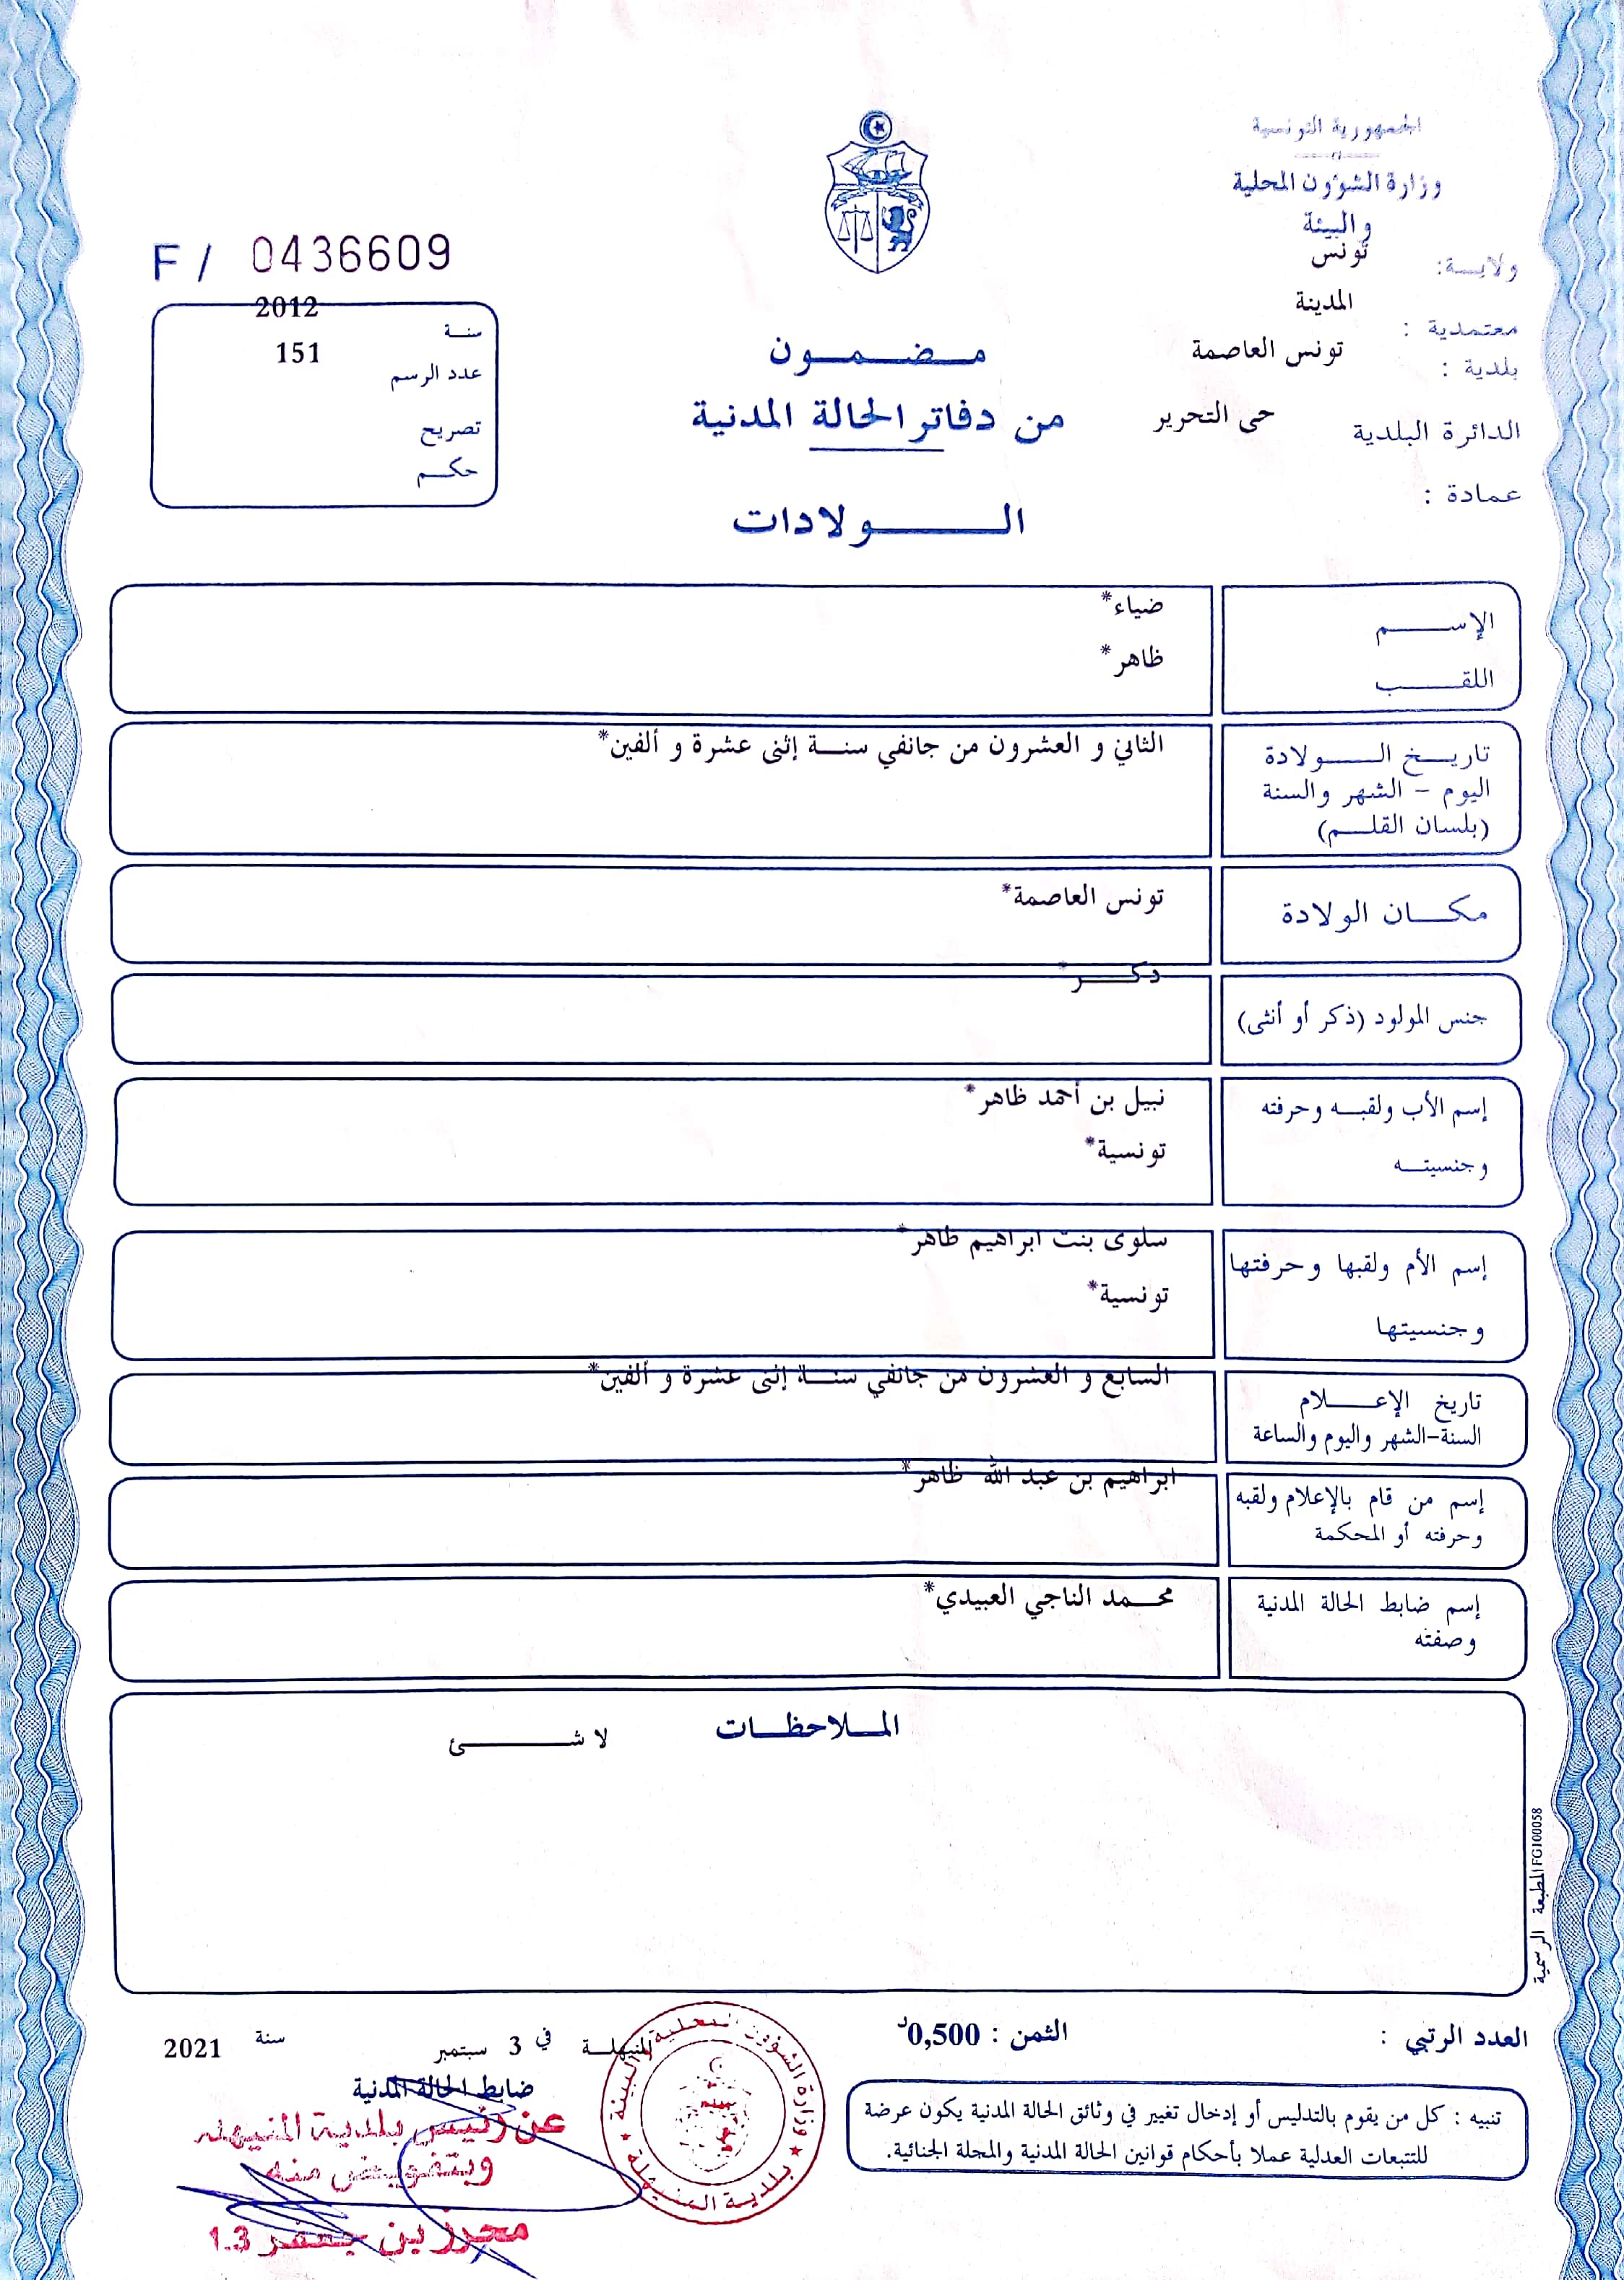 الجمهورية التونسية
وزارة الشؤون المحلية
والبيئة
ولايــة: تونس
معتمدية : المدينة
بلدية : تونس العاصمة
الدائرة البلدية حى التحرير
عمادة :
مـضـمـون
من دفاتر الحالة المدنية
الـولادات
F / 0436609
سنـة 2012
عدد الرسم 151
تصريح
حكـم
الإســم ضياء*
اللقـب ظاهر*
تاريـخ الـولادة الثاني و العشرون من جانفي سنـة إثنى عشرة و ألفين*
اليوم - الشهر والسنة
(بلسان القلـم)
مكـان الولادة تونس العاصمة*
جنس المولود (ذكر أو أنثى) ذكــر*
إسم الأب ولقبـه وحرفته نبيل بن أحمد ظاهر*
وجنسيتـه تونسية*
إسم الأم ولقبها وحرفتها سلوى بنت ابراهيم ظاهر*
وجنسيتها تونسية*
تاريخ الإعـلام السابع و العشرون من جانفي سنـة إثنى عشرة و ألفين*
السنة-الشهر واليوم والساعة
إسم من قام بالإعلام ولقبه ابراهيم بن عبد الله ظاهر*
وحرفته أو المحكمة
إسم ضابط الحالة المدنية محـمد الناجي العبيدي*
وصفته
المـلاحظـات
لا شـــئ
المطبعة الرسمية FG100058
العدد الرتبي :
الثمن : 0,500د
المنيهلـة في 3 سبتمبر سنة 2021
ضابط الحالة المدنية
عن رئيس بلدية المنيهلة
وبتفويض منه
محرز بن جعفر 1.3
وزارة الشؤون المحلية والبيئة
بلدية المنيهلة
تنبيه : كل من يقوم بالتدليس أو إدخال تغيير في وثائق الحالة المدنية يكون عرضة
للتتبعات العدلية عملا بأحكام قوانين الحالة المدنية والمجلة الجنائية.